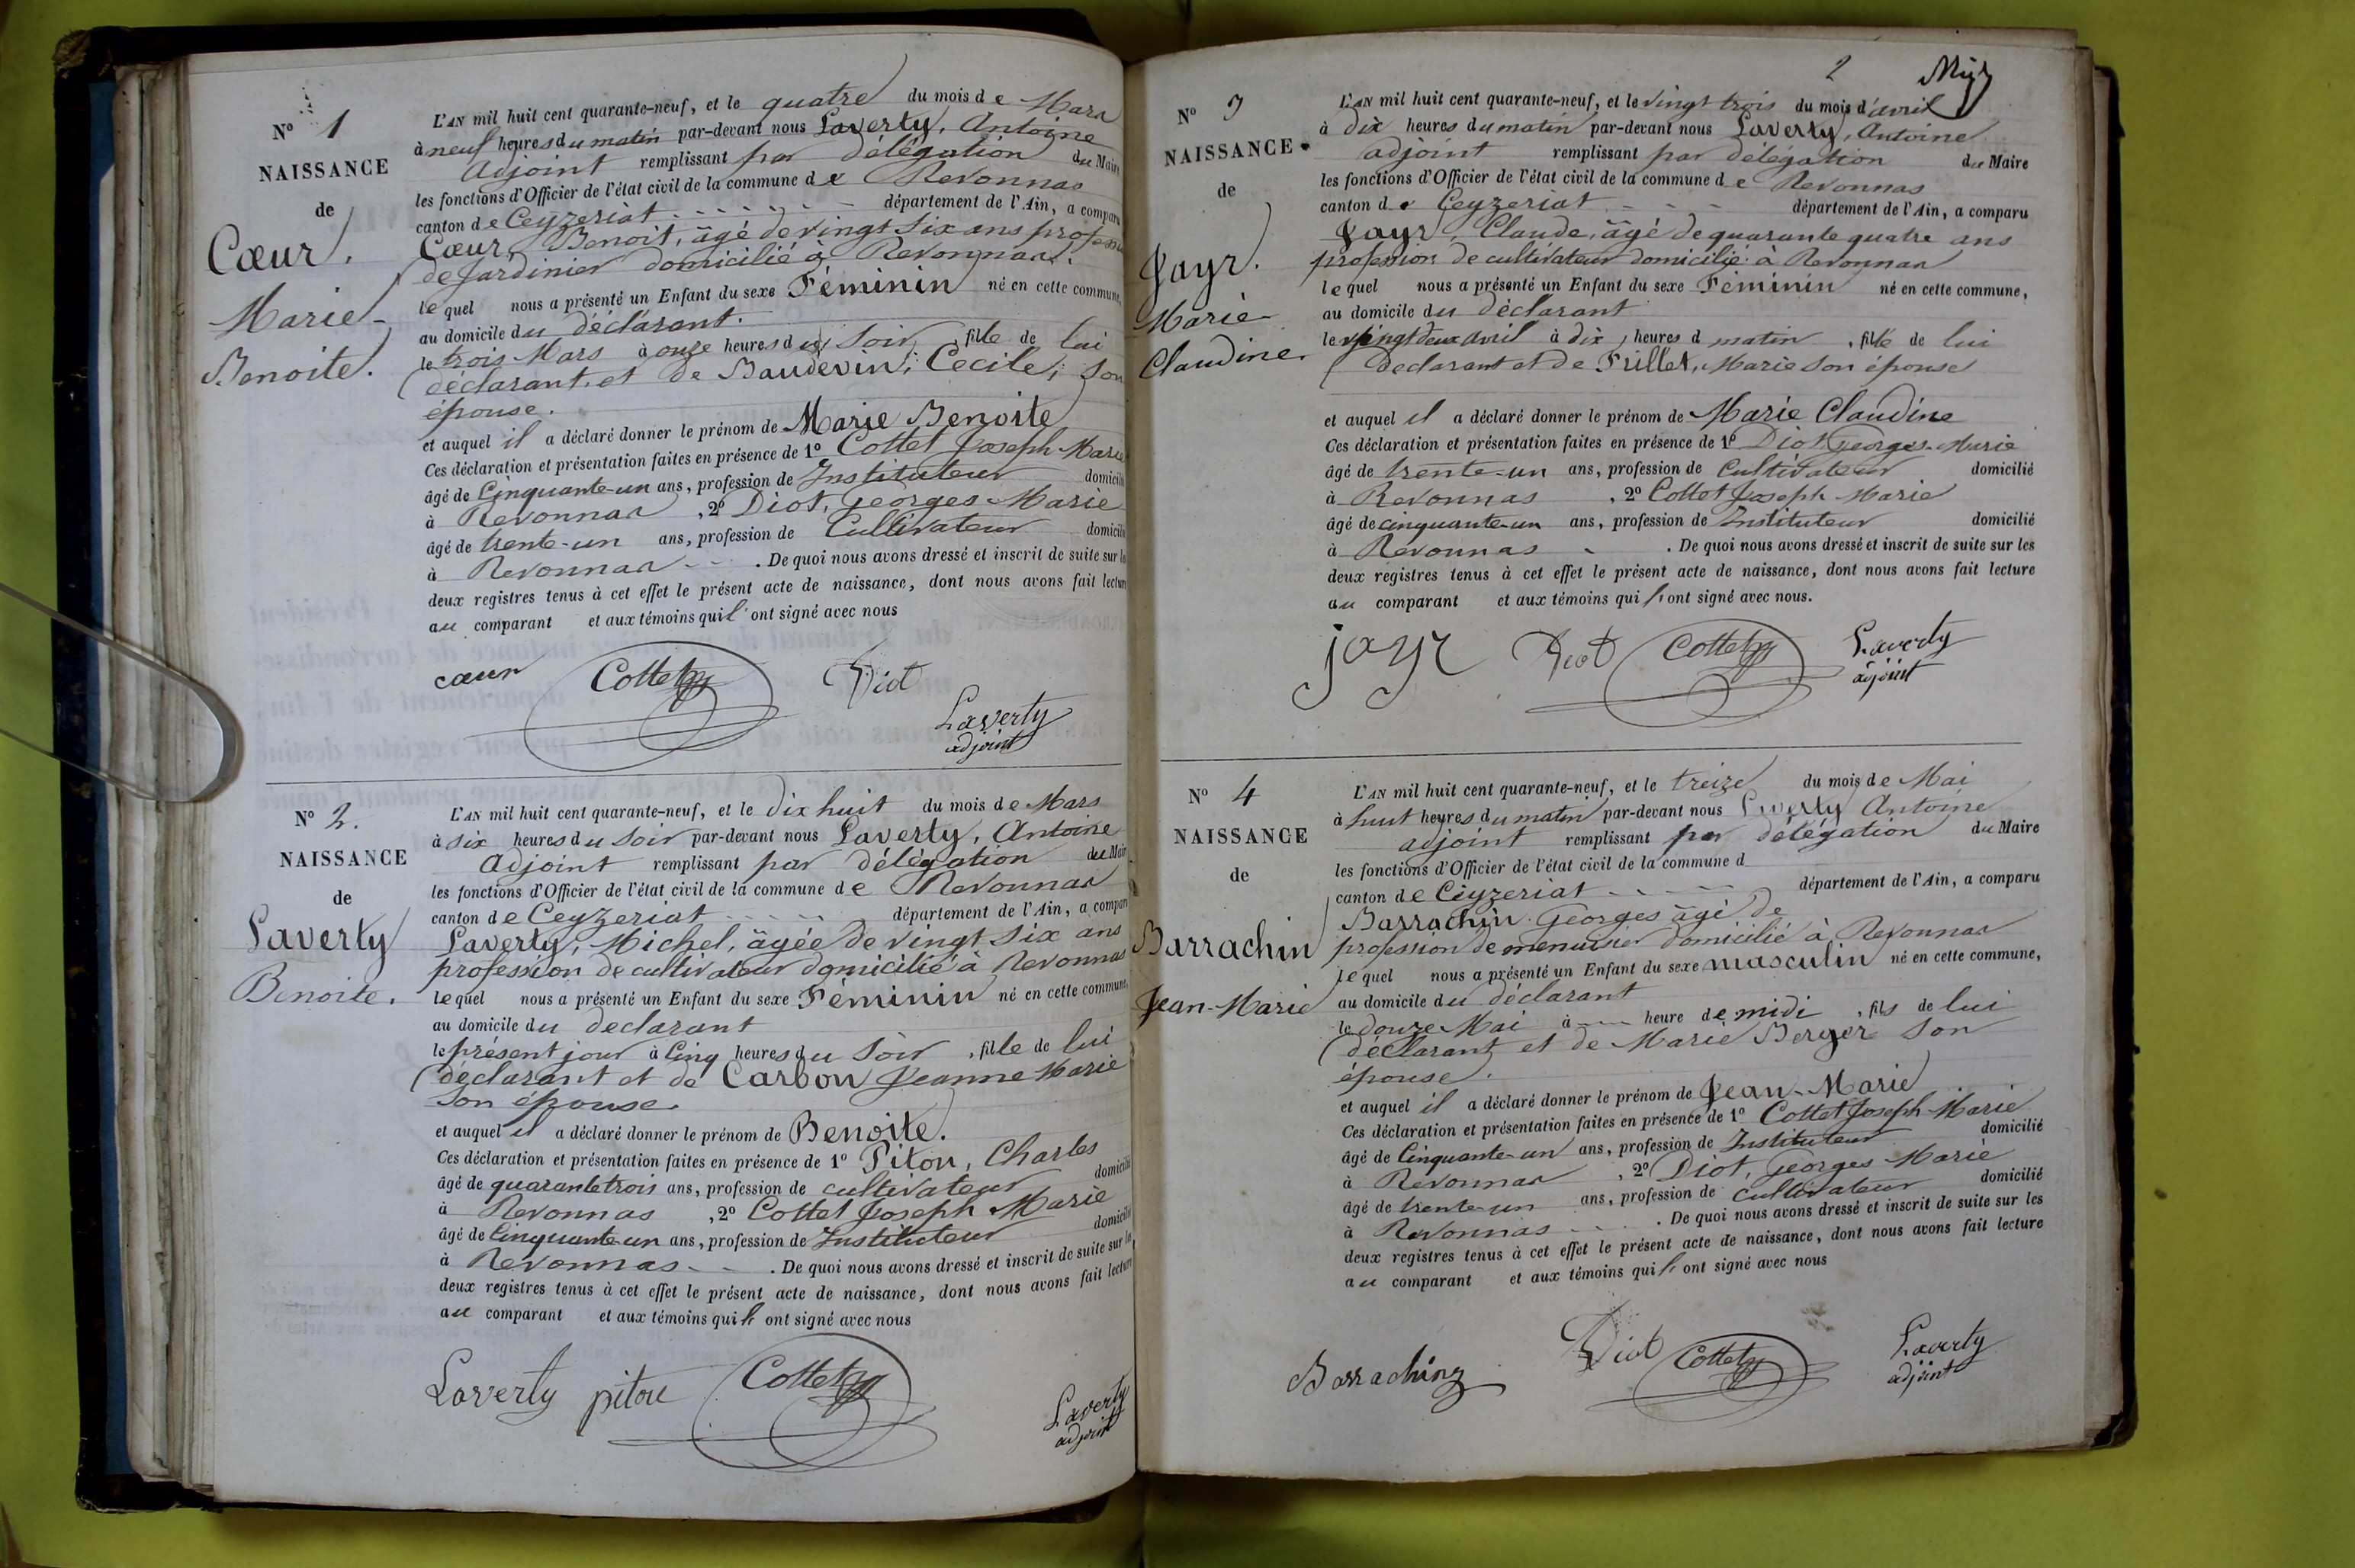 N° 1
NAISSANCE
de
Cœur,
Marie-
Benoite.
L'AN mil huit cent quarante-neuf, et le quatre du mois de Mars
à neuf heures du matin par-devant nous Laverty, Antoine
Adjoint remplissant par délégation du Maire
les fonctions d'Officier de l'état civil de la commune de Revonnas
canton de Ceyzeriat - - - - - - département de l'Ain, a comparu
Cœur, Benoit, âgé de vingt six ans profession
de Jardinier domicilié à Revonnas.
lequel nous a présenté un Enfant du sexe Féminin né en cette commune,
au domicile du déclarant.
le trois Mars à onze heures du soir, fille de lui
déclarant, et de Baudevin, Cecile, son
épouse.
et auquel il a déclaré donner le prénom de Marie Benoite
Ces déclaration et présentation faites en présence de 1° Cottet Joseph Marie
âgé de Cinquante-un ans, profession de Instituteur domicilié
à Revonnas , 2° Diot, Georges-Marie
âgé de trente-un ans, profession de Cultivateur domicilié
à Revonnas - - . De quoi nous avons dressé et inscrit de suite sur les
deux registres tenus à cet effet le présent acte de naissance, dont nous avons fait lecture
au comparant et aux témoins qui l'ont signé avec nous
cœur Cottet Diot
Laverty
adjoint
N° 2.
NAISSANCE
de
Laverty
Benoite.
L'AN mil huit cent quarante-neuf, et le Dix huit du mois de Mars
à six heures du soir par-devant nous Laverty, Antoine
Adjoint remplissant par délégation du Maire
les fonctions d'Officier de l'état civil de la commune de Revonnas
canton de Ceyzeriat - - - - - département de l'Ain, a comparu
Laverty, Michel, âgée de vingt six ans
profession de cultivateur domicilié à Revonnas
lequel nous a présenté un Enfant du sexe Féminin né en cette commune,
au domicile du declarant
le présent jour à Cinq heures du Soir , fille de lui
declarant et de Carbon Jeanne Marie
son épouse.
et auquel il a déclaré donner le prénom de Benoite.
Ces déclaration et présentation faites en présence de 1° Piton, Charles
âgé de quarante trois ans, profession de cultivateur domicilié
à Revonnas , 2° Cottet Joseph Marie
âgé de Cinquante un ans, profession de Instituteur domicilié
à Revonnas - - . De quoi nous avons dressé et inscrit de suite sur les
deux registres tenus à cet effet le présent acte de naissance, dont nous avons fait lecture
au comparant et aux témoins qui l' ont signé avec nous
Laverty piton Cottet
Laverty
adjoint
2
N° 3
NAISSANCE
de
Jayr.
Marie-
Claudine.
L'AN mil huit cent quarante-neuf, et le vingt trois du mois d'avril
à dix heures du matin par-devant nous Laverty, Antoine
adjoint remplissant par délégation du Maire
les fonctions d'Officier de l'état civil de la commune de Revonnas
canton de Ceyzeriat - - - département de l'Ain, a comparu
Jayr, Claude, âgé de quarante quatre ans
profession de cultivateur domicilié à Revonnas
lequel nous a présenté un Enfant du sexe Féminin né en cette commune,
au domicile du déclarant
le vingt deux avril à dix, heures d matin , fille de lui
declarant et de Frillet, Marie son épouse
et auquel il a déclaré donner le prénom de Marie Claudine
Ces déclaration et présentation faites en présence de 1° Diot Georges-Marie
âgé de trente-un ans, profession de Cultivateur domicilié
à Revonnas , 2° Cottet Joseph Marie
âgé de cinquante-un ans, profession de Instituteur domicilié
à Revonnas - . De quoi nous avons dressé et inscrit de suite sur les
deux registres tenus à cet effet le présent acte de naissance, dont nous avons fait lecture
au comparant et aux témoins qui l' ont signé avec nous.
jayr Diot Cottet Laverty
adjoint
N° 4
NAISSANCE
de
Barrachin
Jean-Marie
L'AN mil huit cent quarante-neuf, et le treize du mois de Mai
à huit heures du matin par-devant nous Laverty Antoine
adjoint remplissant par délégation du Maire
les fonctions d'Officier de l'état civil de la commune d
canton de Ceyzeriat - - - - département de l'Ain, a comparu
Barrachin Georges âgé de
profession de menuisier domicilié à Revonnas
lequel nous a présenté un Enfant du sexe masculin né en cette commune,
au domicile du déclarant
le douze Mai à --- heure de midi , fils de lui
déclarant et de Marie Berger son
épouse.
et auquel il a déclaré donner le prénom de Jean-Marie
Ces déclaration et présentation faites en présence de 1° Cottet Joseph-Marie
âgé de Cinquante-un ans, profession de Instituteur domicilié
à Revonnas , 2° Diot, Georges Marie
âgé de trente-un ans, profession de cultivateur domicilié
à Revonnas - - . De quoi nous avons dressé et inscrit de suite sur les
deux registres tenus à cet effet le présent acte de naissance, dont nous avons fait lecture
au comparant et aux témoins qui l' ont signé avec nous
Barrachin Diot Cottet Laverty
adjoint